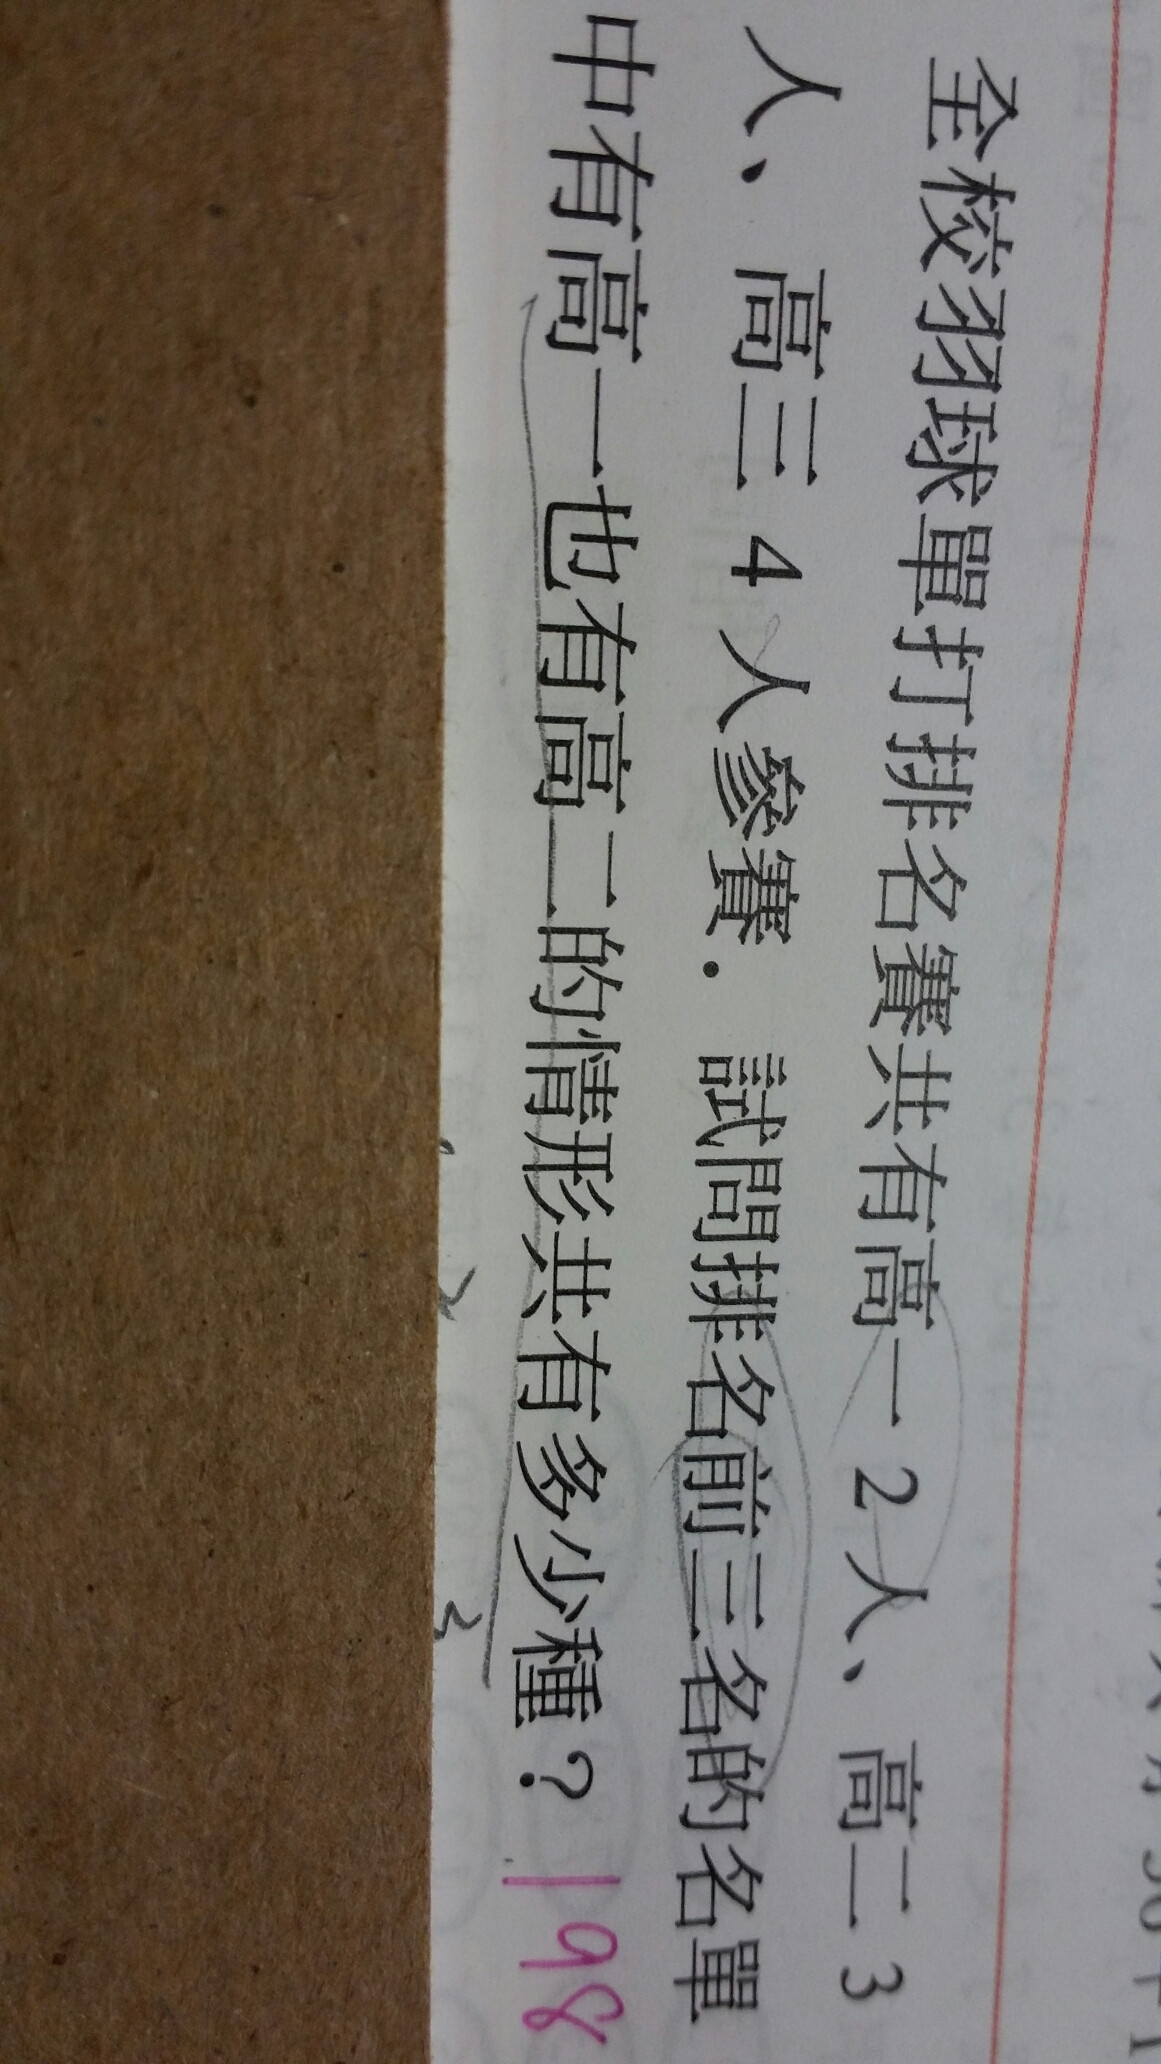 全校羽球單打排名賽共有高一 2 人、高二 3
人、高三 4 人參賽. 試問排名前三名的名單
中有高一也有高二的情形共有多少種? 198